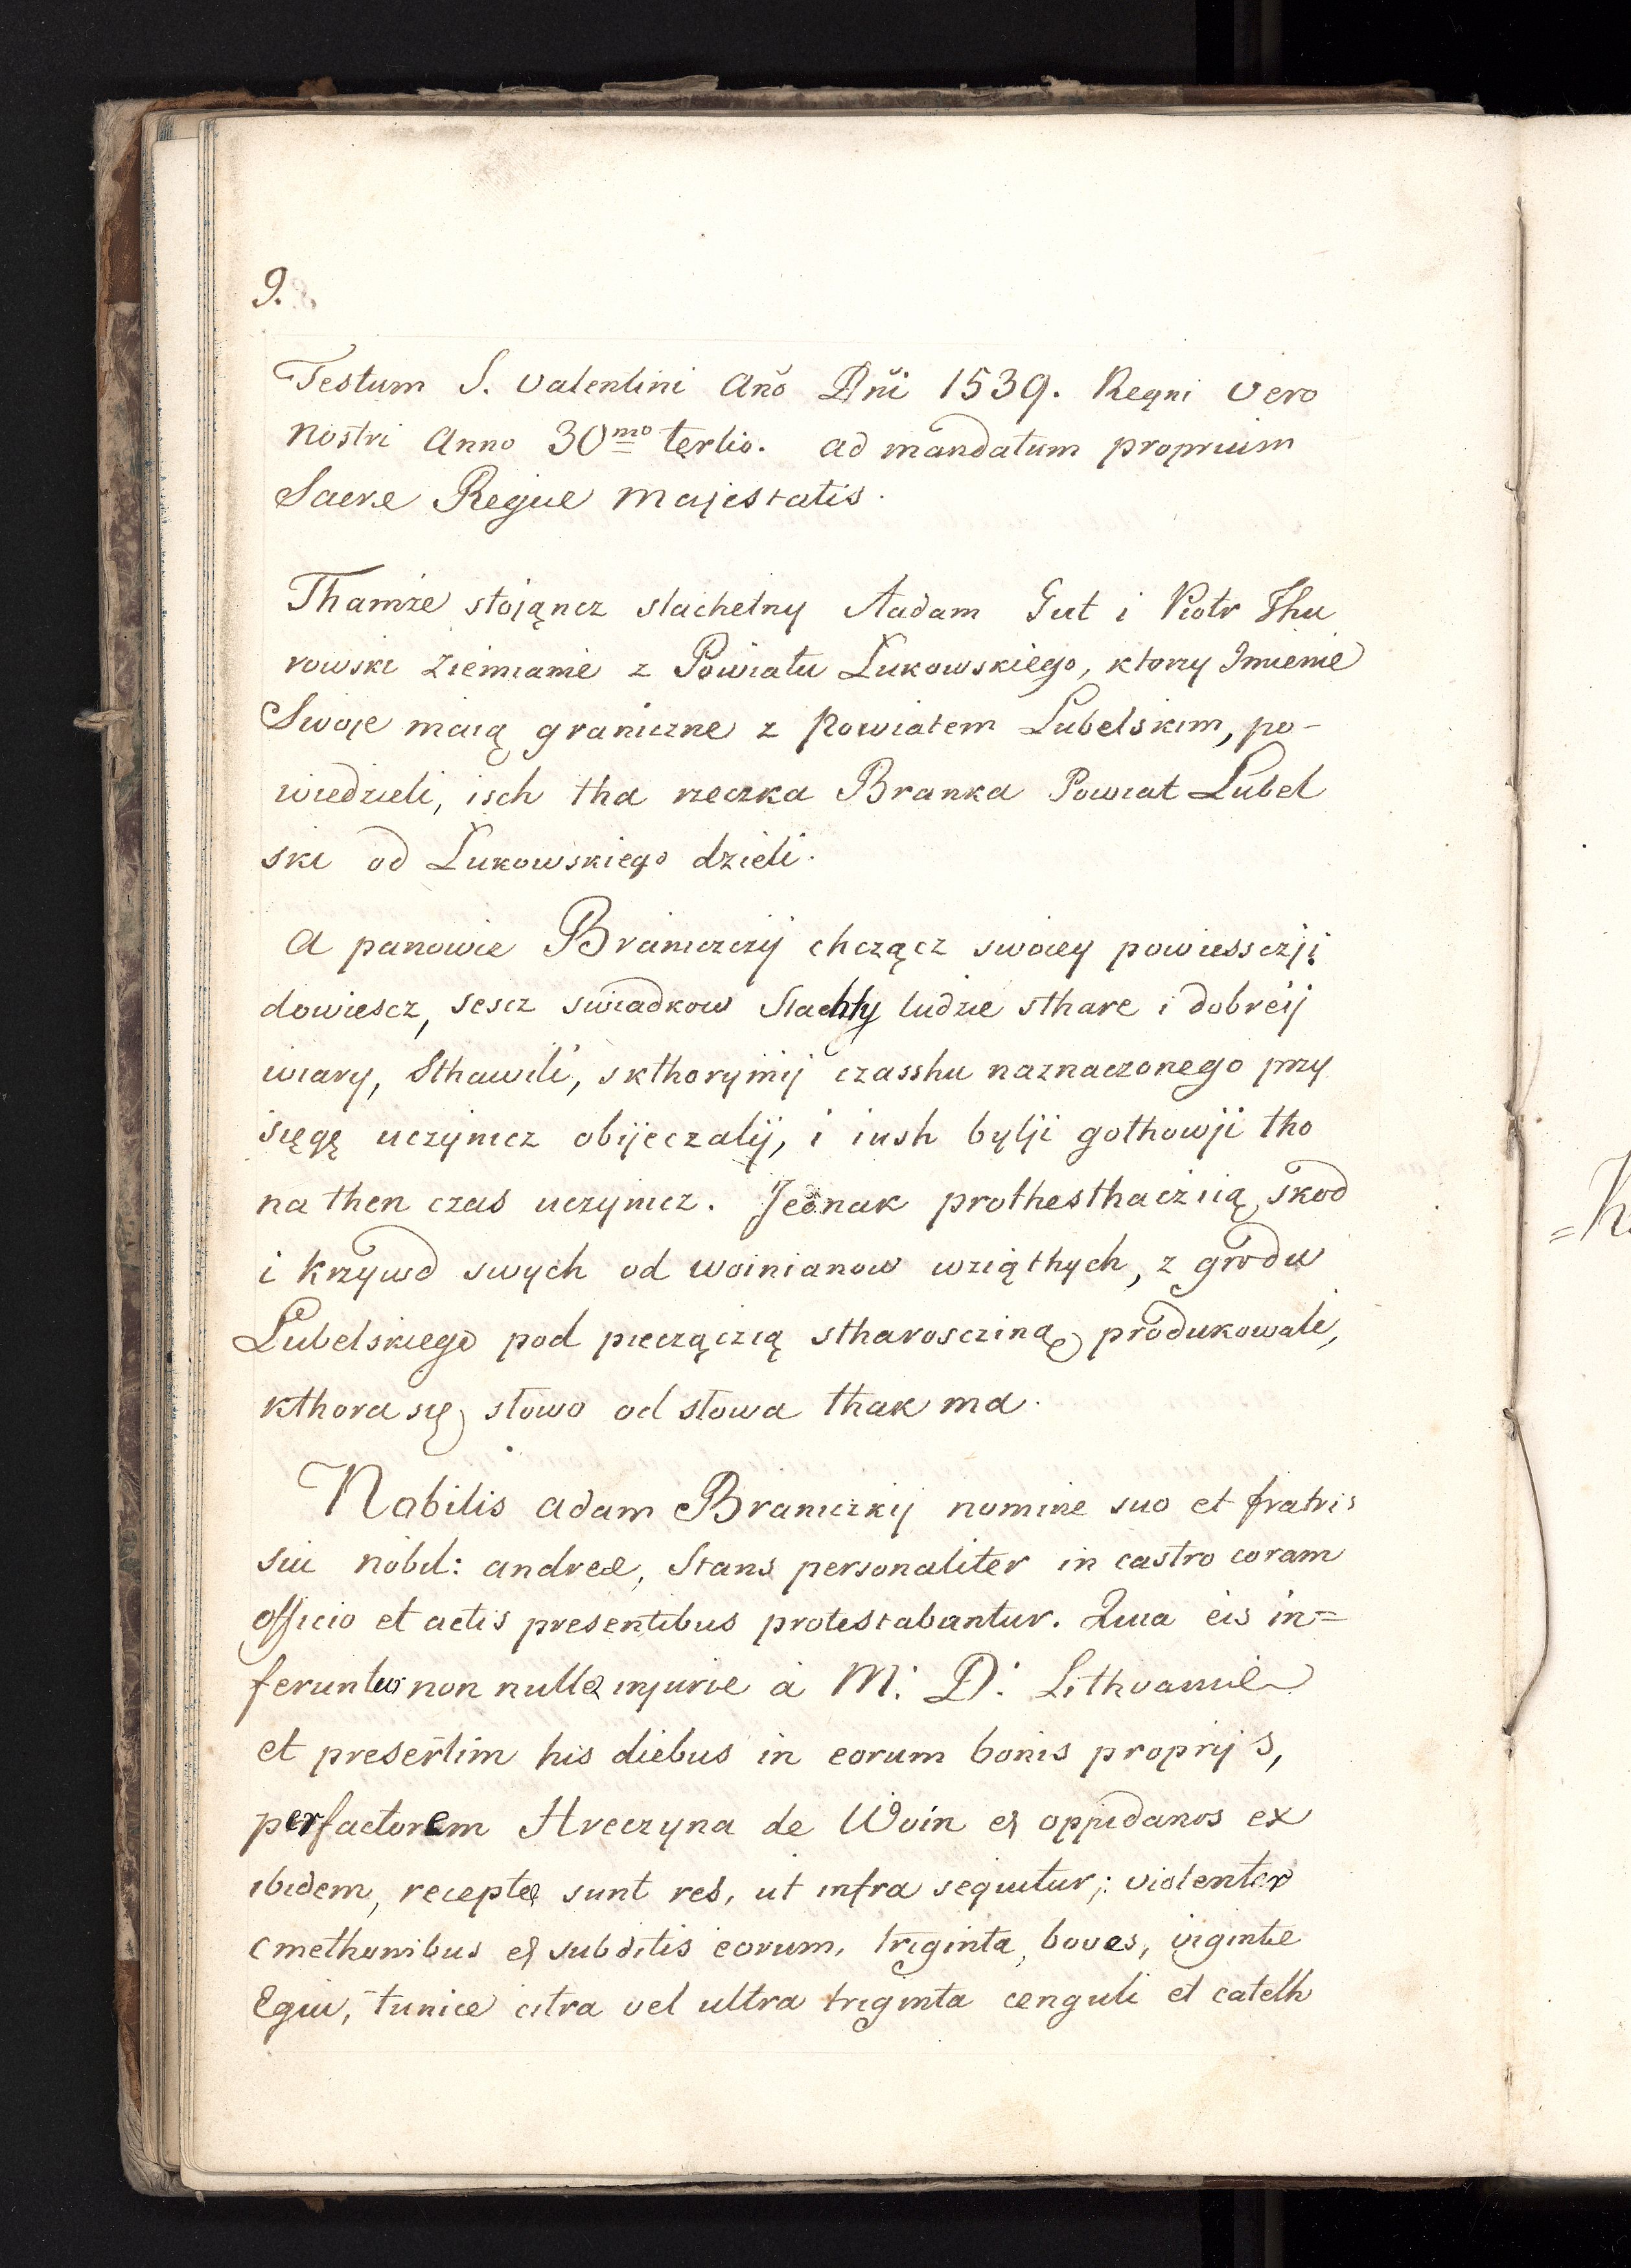 9.
Festum S. Valentini Año Dñi 1539. Regni Vero
nostri Anno 30mo tertio. ad mandatum proprium
Sacre Regie Majestatis.
Thamże stojąncz slachetny Aadam Gut i Piotr Thu
rowski Ziemianie z Powiatu Łukowskiego, ktorzy Imienie
Swoje maią graniczne z Powiatem Lubelskim, po-
wiedzieli, isch tha rzeczka Branka Powiat Lubel
ski od Łukowskiego dzieli.
A panowie Braniczczij chcząncz swoiey powiessczji
dowiescz, sescz swiadkow Slachty ludzie sthare i dobreij
wiary, Sthawili, skthorymij czasshu naznaczonego przy
sięgę uczynicz obijeczalij, i iush bylji gothowji tho
na then czas uczynicz. Jednak prothesthaczią, skod
i krzywd swych od woinianow wziąthych, z grodu
Lubelskiego pod pieczączią stharoscziną produkowali,
kthora się słowo od słowa thak ma.
Nobilis adam Braniczkij nomine suo et fratris
sui nobil: andree, Stans personaliter in castro coram
officio et actis presentibus protestabantur. Quia eis in=
feruntur non nulle injurie à M: D: Lithvanie
et presertim his diebus in eorum bonis proprijs,
per factorem Hreczyna de Woin et oppidanos ex
ibidem, recepte sunt res, ut infra sequitur; violenter
cmethonibus et subditis eorum, triginta, boves, viginti
Equi, tunice citra vel ultra triginta cenguli et catelli